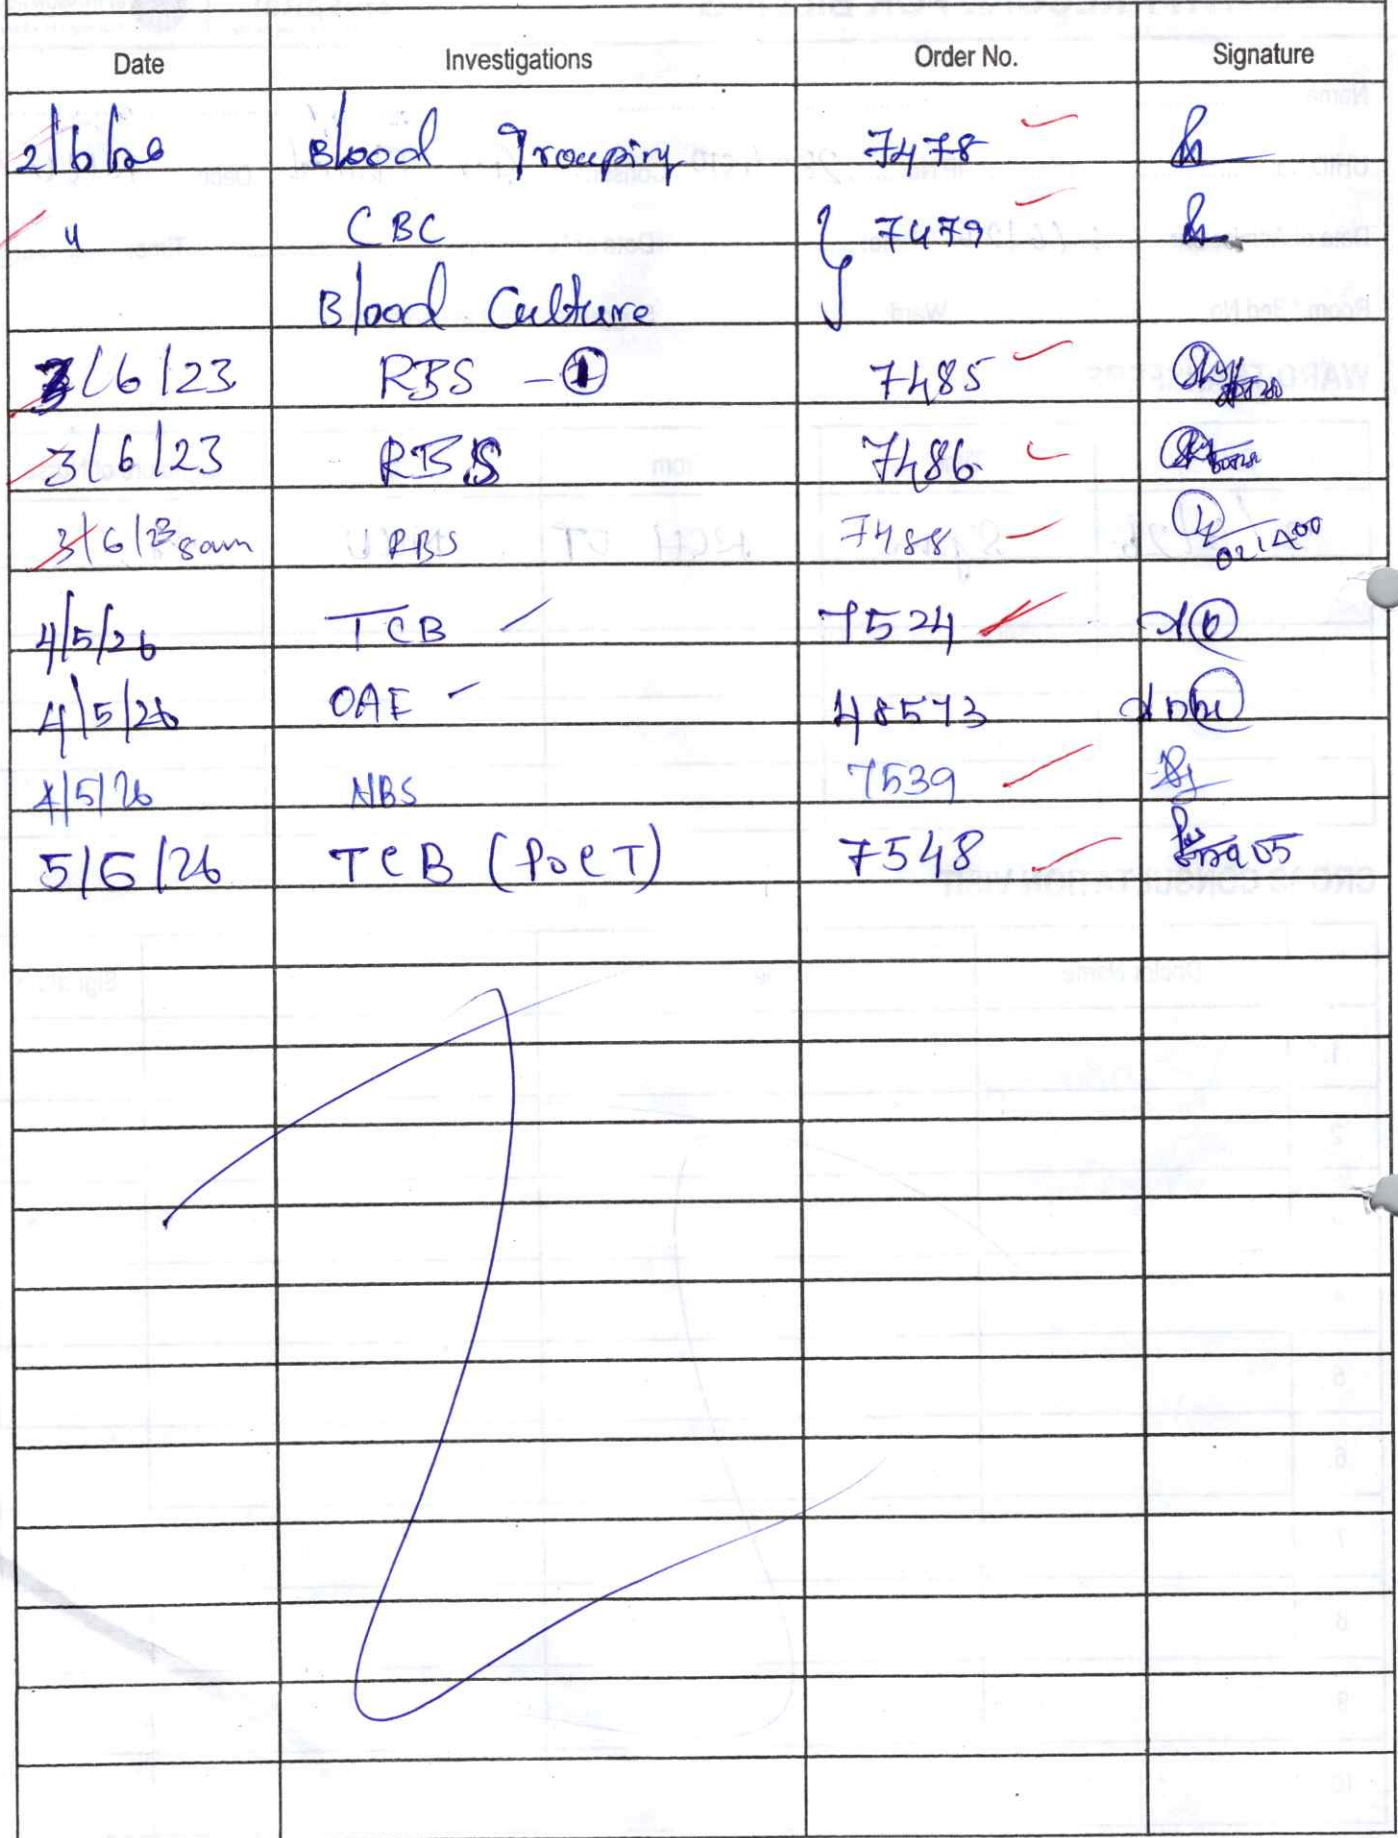 Date Investigations Order No. Signature
2/6/26 Blood Grouping 7478
" CBC 7479
Blood Culture
3/6/23 RBS - 1 7485
3/6/23 RBS 7486
3/6/23 8am RBS 7488
4/5/26 TCB 7524
4/5/26 OAE 48573
4/5/26 NBS 7539
5/6/26 TCB (POCT) 7548